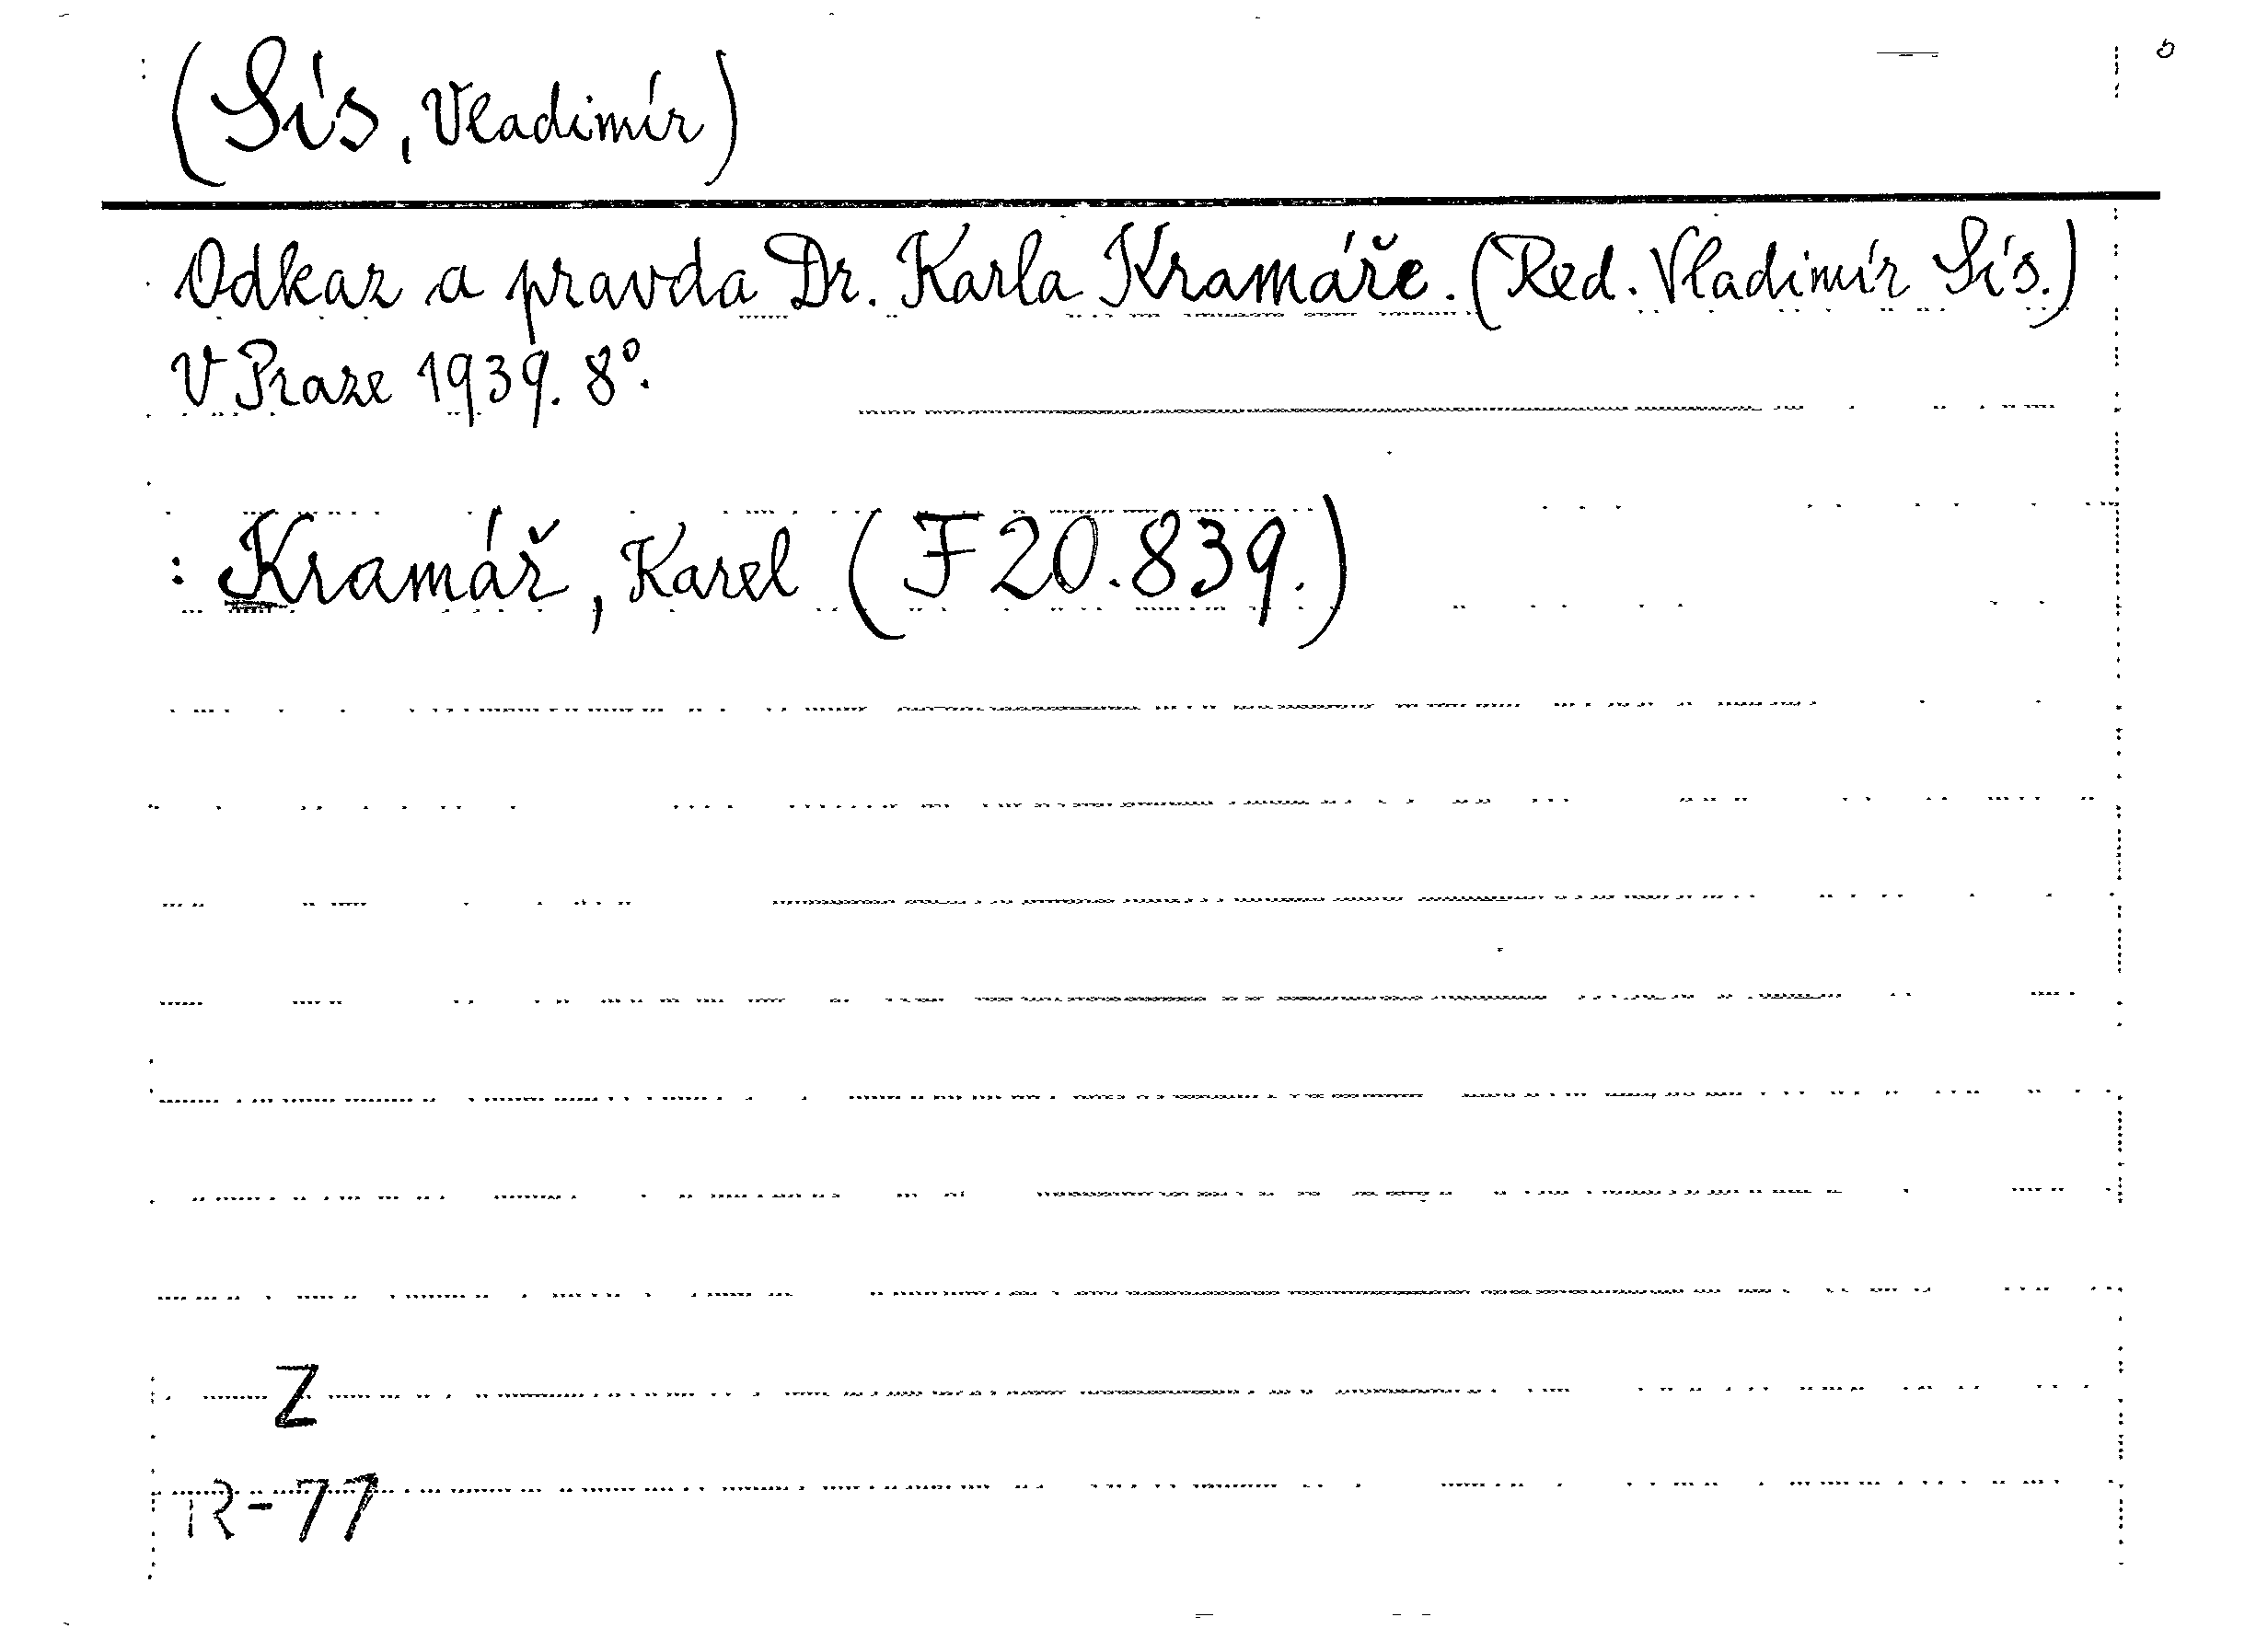 (Sís, Vladimír)
Odkaz a pravda Dr. Karla Kramáře. (Red. Vladimír Sís.)
V Praze 1939. 8°.
: Kramář, Karel (F 20.839.)
Z
R-77